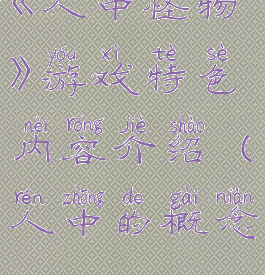 《人中怪物
yóu xì tè sè
》游戏特色
nèi róng jiè shào
内容介绍（
rén zhōng de gài niàn
人中的概念